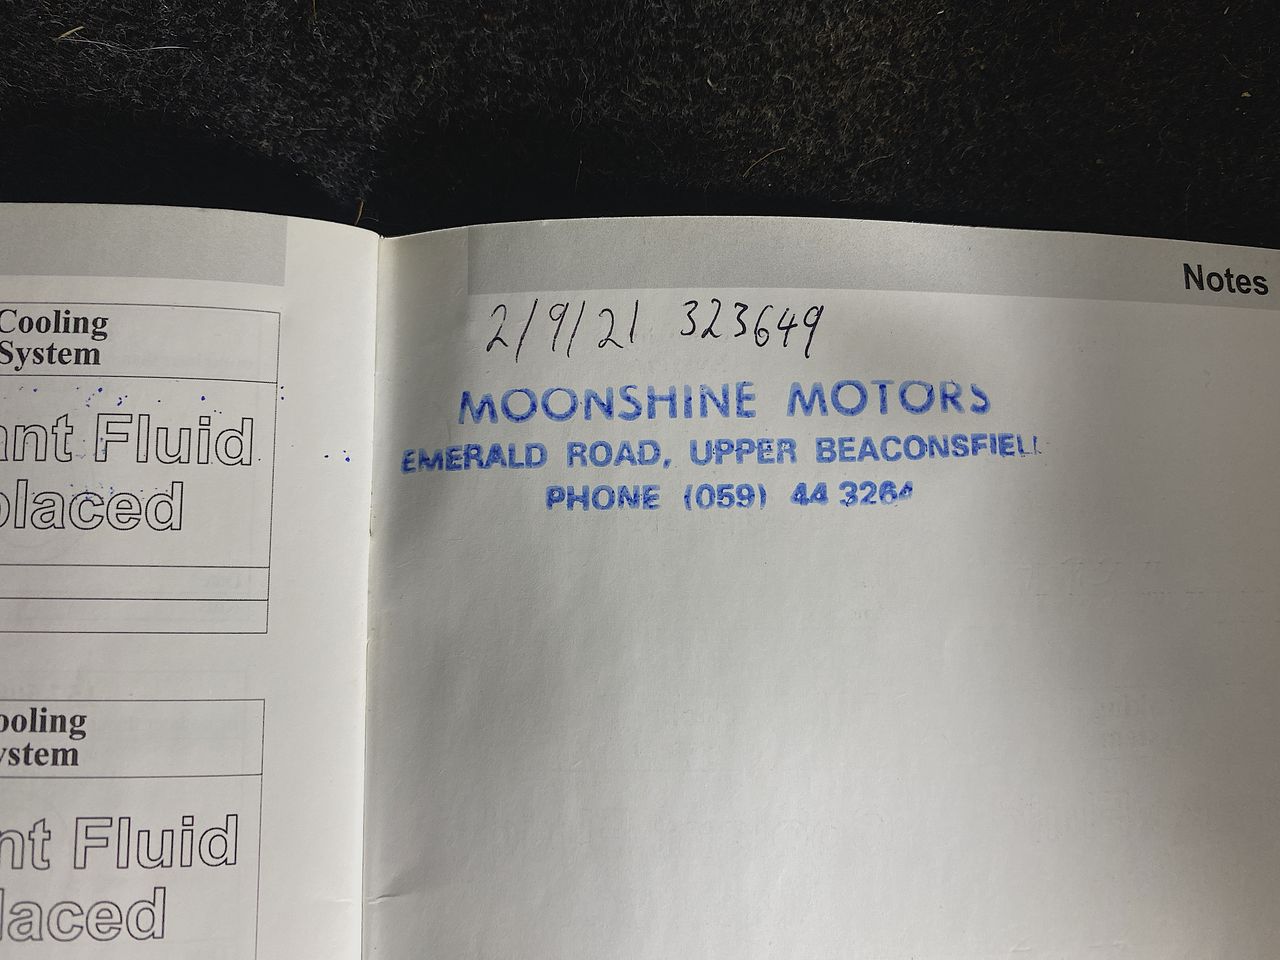 Cooling
System
ant Fluid
placed
ooling
ystem
nt Fluid
laced
Notes
2/9/21 323649
MOONSHINE MOTORS
EMERALD ROAD, UPPER BEACONSFIEL
PHONE (059) 44 3264